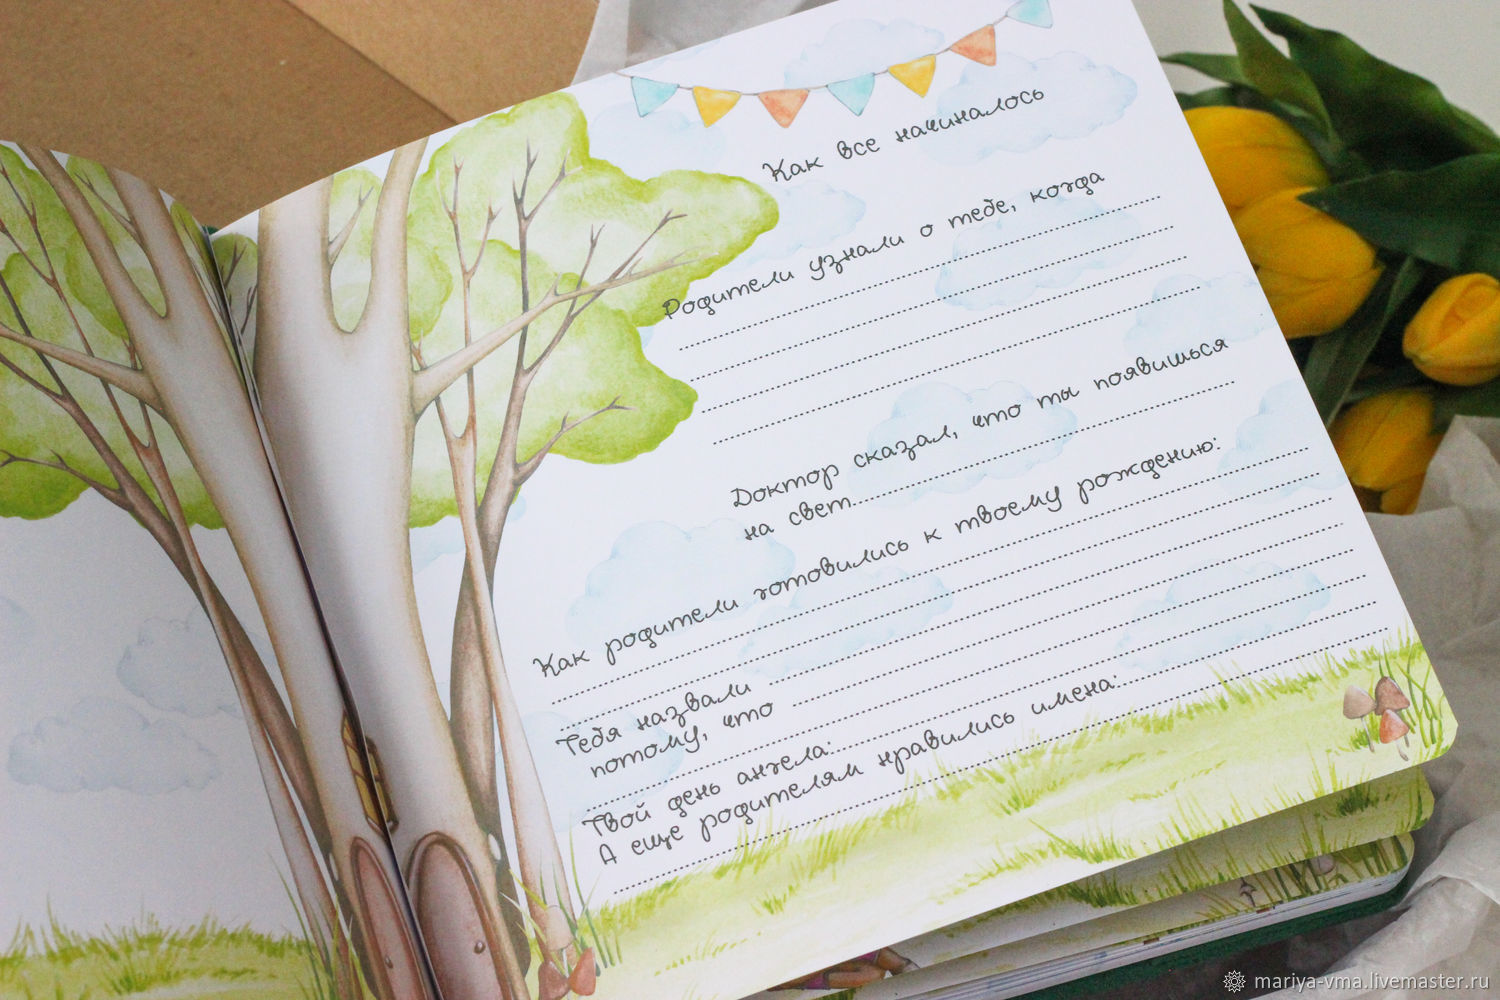 Как все начиналось
Родители узнали о тебе, когда
Доктор сказал, что ты появишься
на свет
Как родители готовились к твоему рождению:
Тебя назвали
потому, что
Твой день ангела:
А еще родителям нравились имена:
mariya-vma.livemaster.ru